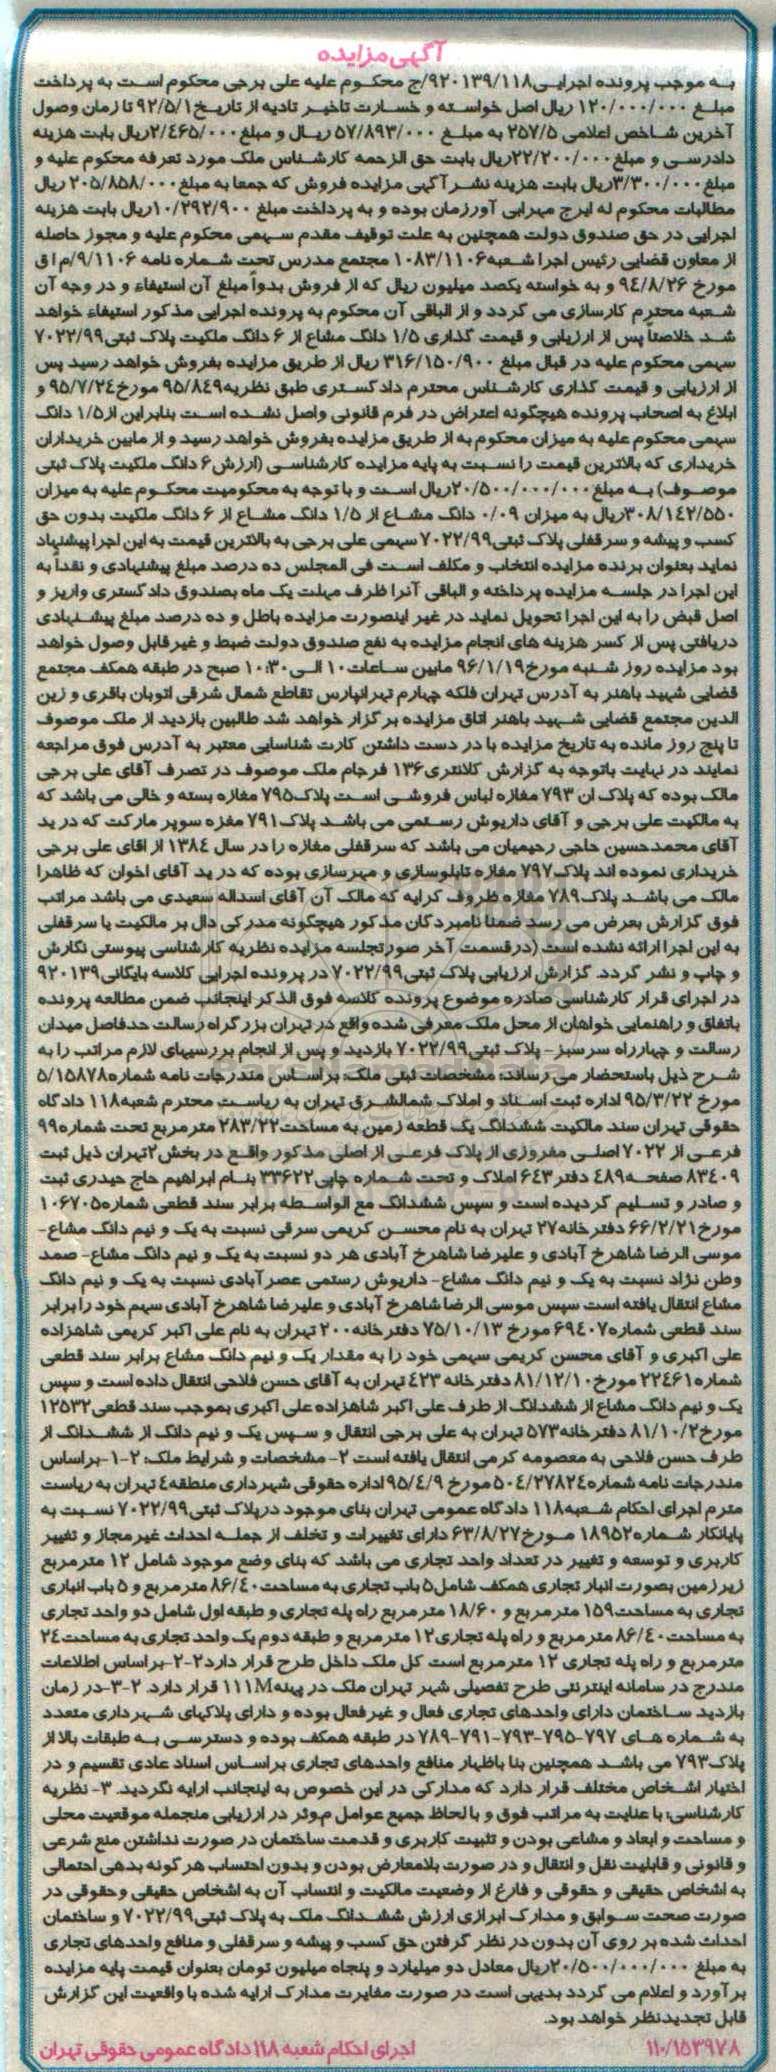 آگهی مزایده
به موجب پرونده اجرایی ۹۲۰۱۳۹/۱۱۸/ج محکوم علیه علی برجی محکوم است به پرداخت
مبلغ ۱۲۰/۰۰۰/۰۰۰ ریال اصل خواسته و خسارت تاخیر تادیه از تاریخ ۹۲/۵/۱ تا زمان وصول
آخرین شاخص اعلامی ۲۵۷/۵ به مبلغ ۵۷/۸۹۳/۰۰۰ ریال و مبلغ ۲/۴۶۵/۰۰۰ریال بابت هزینه
دادرسی و مبلغ ۲۲/۲۰۰/۰۰۰ریال بابت حق الزحمه کارشناس ملک مورد تعرفه محکوم علیه و
مبلغ ۳/۳۰۰/۰۰۰ریال بابت هزینه نشر آگهی مزایده فروش که جمعا به مبلغ ۲۰۵/۸۵۸/۰۰۰ ریال
مطالبات محکوم له ایرج مهرابی آورزمان بوده و به پرداخت مبلغ ۱۰/۲۹۲/۹۰۰ریال بابت هزینه
اجرایی در حق صندوق دولت همچنین به علت توقیف مقدم سهمی محکوم علیه و مجوز حاصله
از معاون قضایی رئیس اجرا شعبه ۱۰۸۳/۱۱۰۶ مجتمع مدرس تحت شماره نامه ۹/۱۱۰۶/م ا ق
مورخ ۹۴/۸/۲۶ و به خواسته یکصد میلیون ریال که از فروش بدواً مبلغ آن استیفاء و در وجه آن
شعبه محترم کارسازی می گردد و از الباقی آن محکوم به پرونده اجرایی مذکور استیفاء خواهد
شد خلاصتاً پس از ارزیابی و قیمت گذاری ۱/۵ دانگ مشاع از ۶ دانگ ملکیت پلاک ثبتی ۷۰۲۲/۹۹
سهمی محکوم علیه در قبال مبلغ ۳۱۶/۱۵۰/۹۰۰ ریال از طریق مزایده بفروش خواهد رسید پس
از ارزیابی و قیمت گذاری کارشناس محترم دادگستری طبق نظریه ۹۵/۸۴۹ مورخ ۹۵/۷/۲۴ و
ابلاغ به اصحاب پرونده هیچگونه اعتراض در فرم قانونی واصل نشده است بنابراین از ۱/۵ دانگ
سهمی محکوم علیه به میزان محکوم به از طریق مزایده بفروش خواهد رسید و از مابین خریداران
خریداری که بالاترین قیمت را نسبت به پایه مزایده کارشناسی (ارزش ۶ دانگ ملکیت پلاک ثبتی
موصوف) به مبلغ ۲۰/۵۰۰/۰۰۰/۰۰۰ریال است و با توجه به محکومیت محکوم علیه به میزان
۳۰۸/۱۴۲/۵۵۰ریال به میزان ۰/۰۹ دانگ مشاع از ۱/۵ دانگ مشاع از ۶ دانگ ملکیت بدون حق
کسب و پیشه و سرقفلی پلاک ثبتی ۷۰۲۲/۹۹ سهمی علی برجی به بالاترین قیمت به این اجرا پیشنهاد
نماید بعنوان برنده مزایده انتخاب و مکلف است فی المجلس ده درصد مبلغ پیشنهادی و نقداً به
این اجرا در جلسه مزایده پرداخته و الباقی آنرا ظرف مهلت یک ماه بصندوق دادگستری واریز و
اصل قبض را به این اجرا تحویل نماید در غیر اینصورت مزایده باطل و ده درصد مبلغ پیشنهادی
دریافتی پس از کسر هزینه های انجام مزایده به نفع صندوق دولت ضبط و غیرقابل وصول خواهد
بود مزایده روز شنبه مورخ ۹۶/۱/۱۹ مابین ساعات ۱۰ الی ۱۰:۳۰ صبح در طبقه همکف مجتمع
قضایی شهید باهنر به آدرس تهران فلکه چهارم تهرانپارس تقاطع شمال شرقی اتوبان باقری و زین
الدین مجتمع قضایی شهید باهنر اتاق مزایده برگزار خواهد شد طالبین بازدید از ملک موصوف
تا پنج روز مانده به تاریخ مزایده با در دست داشتن کارت شناسایی معتبر به آدرس فوق مراجعه
نمایند در نهایت باتوجه به گزارش کلانتری ۱۳۶ فرجام ملک موصوف در تصرف آقای علی برجی
مالک بوده که پلاک ان ۷۹۳ مغازه لباس فروشی است پلاک ۷۹۵ مغازه بسته و خالی می باشد که
به مالکیت علی برجی و آقای داریوش رستمی می باشد پلاک ۷۹۱ مغزه سوپر مارکت که در ید
آقای محمدحسین حاجی رحیمیان می باشد که سرقفلی مغازه را در سال ۱۳۸۴ از اقای علی برجی
خریداری نموده اند پلاک ۷۹۷ مغازه تابلوسازی و مهرسازی بوده که در ید آقای اخوان که ظاهرا
مالک می باشد پلاک ۷۸۹ مغازه ظروف کرایه که مالک آن آقای اسداله سعیدی می باشد مراتب
فوق گزارش بعرض می رسد ضمنا نامبردگان مذکور هیچگونه مدرکی دال بر مالکیت یا سرقفلی
به این اجرا ارائه نشده است (درقسمت آخر صورتجلسه مزایده نظریه کارشناسی پیوستی نگارش
و چاپ و نشر گردد. گزارش ارزیابی پلاک ثبتی ۷۰۲۲/۹۹ در پرونده اجرایی کلاسه بایگانی ۹۲۰۱۳۹
در اجرای قرار کارشناسی صادره موضوع پرونده کلاسه فوق الذکر اینجانب ضمن مطالعه پرونده
باتفاق و راهنمایی خواهان از محل ملک معرفی شده واقع در تهران بزرگراه رسالت حدفاصل میدان
رسالت و چهارراه سرسبز- پلاک ثبتی ۷۰۲۲/۹۹ بازدید و پس از انجام بررسیهای لازم مراتب را به
شرح ذیل باستحضار می رساند: مشخصات ثبتی ملک: براساس مندرجات نامه شماره ۵/۱۵۸۷۸
مورخ ۹۵/۳/۲۲ اداره ثبت اسناد و املاک شمالشرق تهران به ریاست محترم شعبه ۱۱۸ دادگاه
حقوقی تهران سند مالکیت ششدانگ یک قطعه زمین به مساحت ۲۸۳/۲۲ مترمربع تحت شماره ۹۹
فرعی از ۷۰۲۲ اصلی مفروزی از پلاک فرعی از اصلی مذکور واقع در بخش ۲ تهران ذیل ثبت
۸۳۴۰۹ صفحه ۴۸۹ دفتر ۶۴۳ املاک و تحت شماره چاپی ۳۳۶۲۲ بنام ابراهیم حاج حیدری ثبت
و صادر و تسلیم گردیده است و سپس ششدانگ مع الواسطه برابر سند قطعی شماره ۱۰۶۷۰۵
مورخ ۶۶/۲/۲۱ دفترخانه ۲۷ تهران به نام محسن کریمی سرقی نسبت به یک و نیم دانگ مشاع-
موسی الرضا شاهرخ آبادی و علیرضا شاهرخ آبادی هر دو نسبت به یک و نیم دانگ مشاع- صمد
وطن نژاد نسبت به یک و نیم دانگ مشاع- داریوش رستمی عصرآبادی نسبت به یک و نیم دانگ
مشاع انتقال یافته است سپس موسی الرضا شاهرخ آبادی و علیرضا شاهرخ آبادی سهم خود را برابر
سند قطعی شماره ۶۹۴۰۷ مورخ ۷۵/۱۰/۱۳ دفترخانه ۲۰۰ تهران به نام علی اکبر کریمی شاهزاده
علی اکبری و آقای محسن کریمی سهمی خود را به مقدار یک و نیم دانگ مشاع برابر سند قطعی
شماره ۲۲۴۶۱ مورخ ۸۱/۱۲/۱۰ دفترخانه ۴۲۳ تهران به آقای حسن فلاحی انتقال داده است و سپس
یک و نیم دانگ مشاع از ششدانگ از طرف علی اکبر شاهزاده علی اکبری بموجب سند قطعی ۱۲۵۳۲
مورخ ۸۱/۱۰/۲ دفترخانه ۵۷۳ تهران به علی برجی انتقال و سپس یک و نیم دانگ از ششدانگ از
طرف حسن فلاحی به معصومه کرمی انتقال یافته است ۲- مشخصات و شرایط ملک: ۲-۱-براساس
مندرجات نامه شماره ۵۰۴/۲۷۸۲۴ مورخ ۹۵/۴/۹ اداره حقوقی شهرداری منطقه ۴ تهران به ریاست
مترم اجرای احکام شعبه ۱۱۸ دادگاه عمومی تهران بنای موجود درپلاک ثبتی ۷۰۲۲/۹۹ نسبت به
پایانکار شماره ۱۸۹۵۲ مورخ ۶۳/۸/۲۷ دارای تغییرات و تخلف از جمله احداث غیرمجاز و تغییر
کاربری و توسعه و تغییر در تعداد واحد تجاری می باشد که بنای وضع موجود شامل ۱۲ مترمربع
زیرزمین بصورت انبار تجاری همکف شامل ۵ باب تجاری به مساحت ۸۶/۴۰ مترمربع و ۵ باب انباری
تجاری به مساحت ۱۵۹ مترمربع و ۱۸/۶۰ متر مربع راه پله تجاری و طبقه اول شامل دو واحد تجاری
به مساحت ۸۶/۴۰ مترمربع و راه پله تجاری ۱۲ مترمربع و طبقه دوم یک واحد تجاری به مساحت ۲۴
مترمربع و راه پله تجاری ۱۲ مترمربع است کل ملک داخل طرح قرار دارد ۲-۲-براساس اطلاعات
مندرج در سامانه اینترنتی طرح تفصیلی شهر تهران ملک در پهنه M۱۱۱ قرار دارد. ۲-۳-در زمان
بازدید ساختمان دارای واحدهای تجاری فعال و غیرفعال بوده و دارای پلاکهای شهرداری متعدد
به شماره های ۷۹۷-۷۹۵-۷۹۳-۷۹۱-۷۸۹ در طبقه همکف بوده و دسترسی به طبقات بالا از
پلاک ۷۹۳ می باشد همچنین بنا باظهار منافع واحدهای تجاری براساس اسناد عادی تقسیم و در
اختیار اشخاص مختلف قرار دارد که مدارکی در این خصوص به اینجانب ارایه نگردید. ۳- نظریه
کارشناسی: با عنایت به مراتب فوق و با لحاظ جمیع عوامل موثر در ارزیابی منجمله موقعیت محلی
و مساحت و ابعاد و مشاعی بودن و تثبیت کاربری و قدمت ساختمان در صورت نداشتن منع شرعی
و قانونی و قابلیت نقل و انتقال و در صورت بلامعارض بودن و بدون احتساب هر گونه بدهی احتمالی
به اشخاص حقیقی و حقوقی و فارغ از وضعیت مالکیت و انتساب آن به اشخاص حقیقی وحقوقی در
صورت صحت سوابق و مدارک ابرازی ارزش ششدانگ ملک به پلاک ثبتی ۷۰۲۲/۹۹ و ساختمان
احداث شده بر روی آن بدون در نظر گرفتن حق کسب و پیشه و سرقفلی و منافع واحدهای تجاری
به مبلغ ۲۰/۵۰۰/۰۰۰/۰۰۰ریال معادل دو میلیارد و پنجاه میلیون تومان بعنوان قیمت پایه مزایده
برآورد و اعلام می گردد بدیهی است در صورت مغایرت مدارک ارایه شده با واقعیت این گزارش
قابل تجدیدنظر خواهد بود.
۱۱۰/۱۵۳۹۷۸ اجرای احکام شعبه ۱۱۸ دادگاه عمومی حقوقی تهران